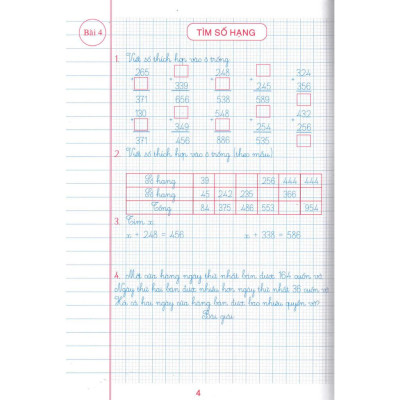 Bài 4
TÌM SỐ HẠNG
1. Viết số thích hợp vào ô trống
265 □ 248 □ 324
+ □ + 339 + □ + 245 + 356
371 656 538 589 □
130 □ 548 □ 432
+ □ + 349 + □ + 254 + 256
371 456 886 535 □
2. Viết số thích hợp vào ô trống (theo mẫu)
Số hạng 39 256 444 444
Số hạng 45 242 235 366
Tổng 84 375 486 553 954
3. Tìm x
x + 248 = 456 x + 338 = 586
4. Một cửa hàng ngày thứ nhất bán được 164 cuốn vở.
Ngày thứ hai bán được nhiều hơn ngày thứ nhất 36 cuốn vở.
Hỏi cả hai ngày cửa hàng bán được bao nhiêu quyển vở?
Bài giải
4